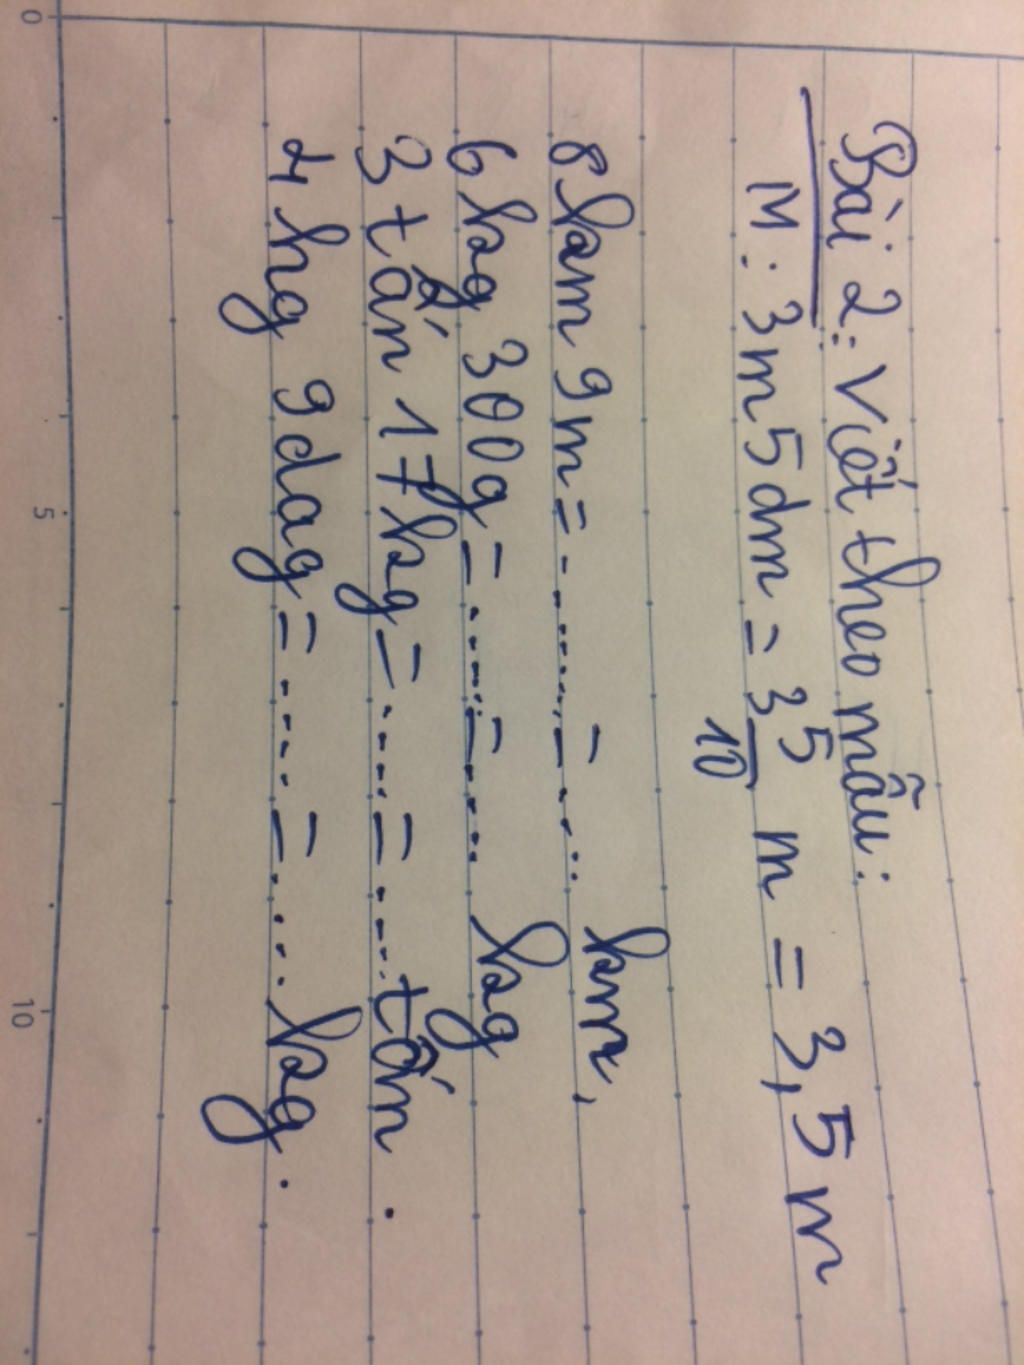 Bài 2: Viết theo mẫu:
M: 3m5dm = 3 5/10 m = 3,5 m
8km 9m = ........ = ..... km,
6kg 300g = ....... = ..... kg
3 tấn 17kg = ...... = ..... tấn.
4hg 9dag = ...... = ..... kg.
0
5
10